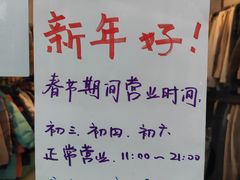 新年好!
春节期间营业时间.
初三、初四、初六
正常营业. 11:00~21:00